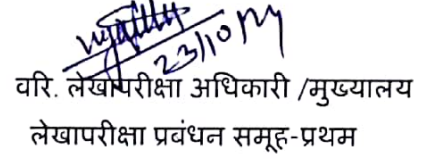 23/10/19
वरि. लेखापरीक्षा अधिकारी /मुख्यालय
लेखापरीक्षा प्रबंधन समूह-प्रथम